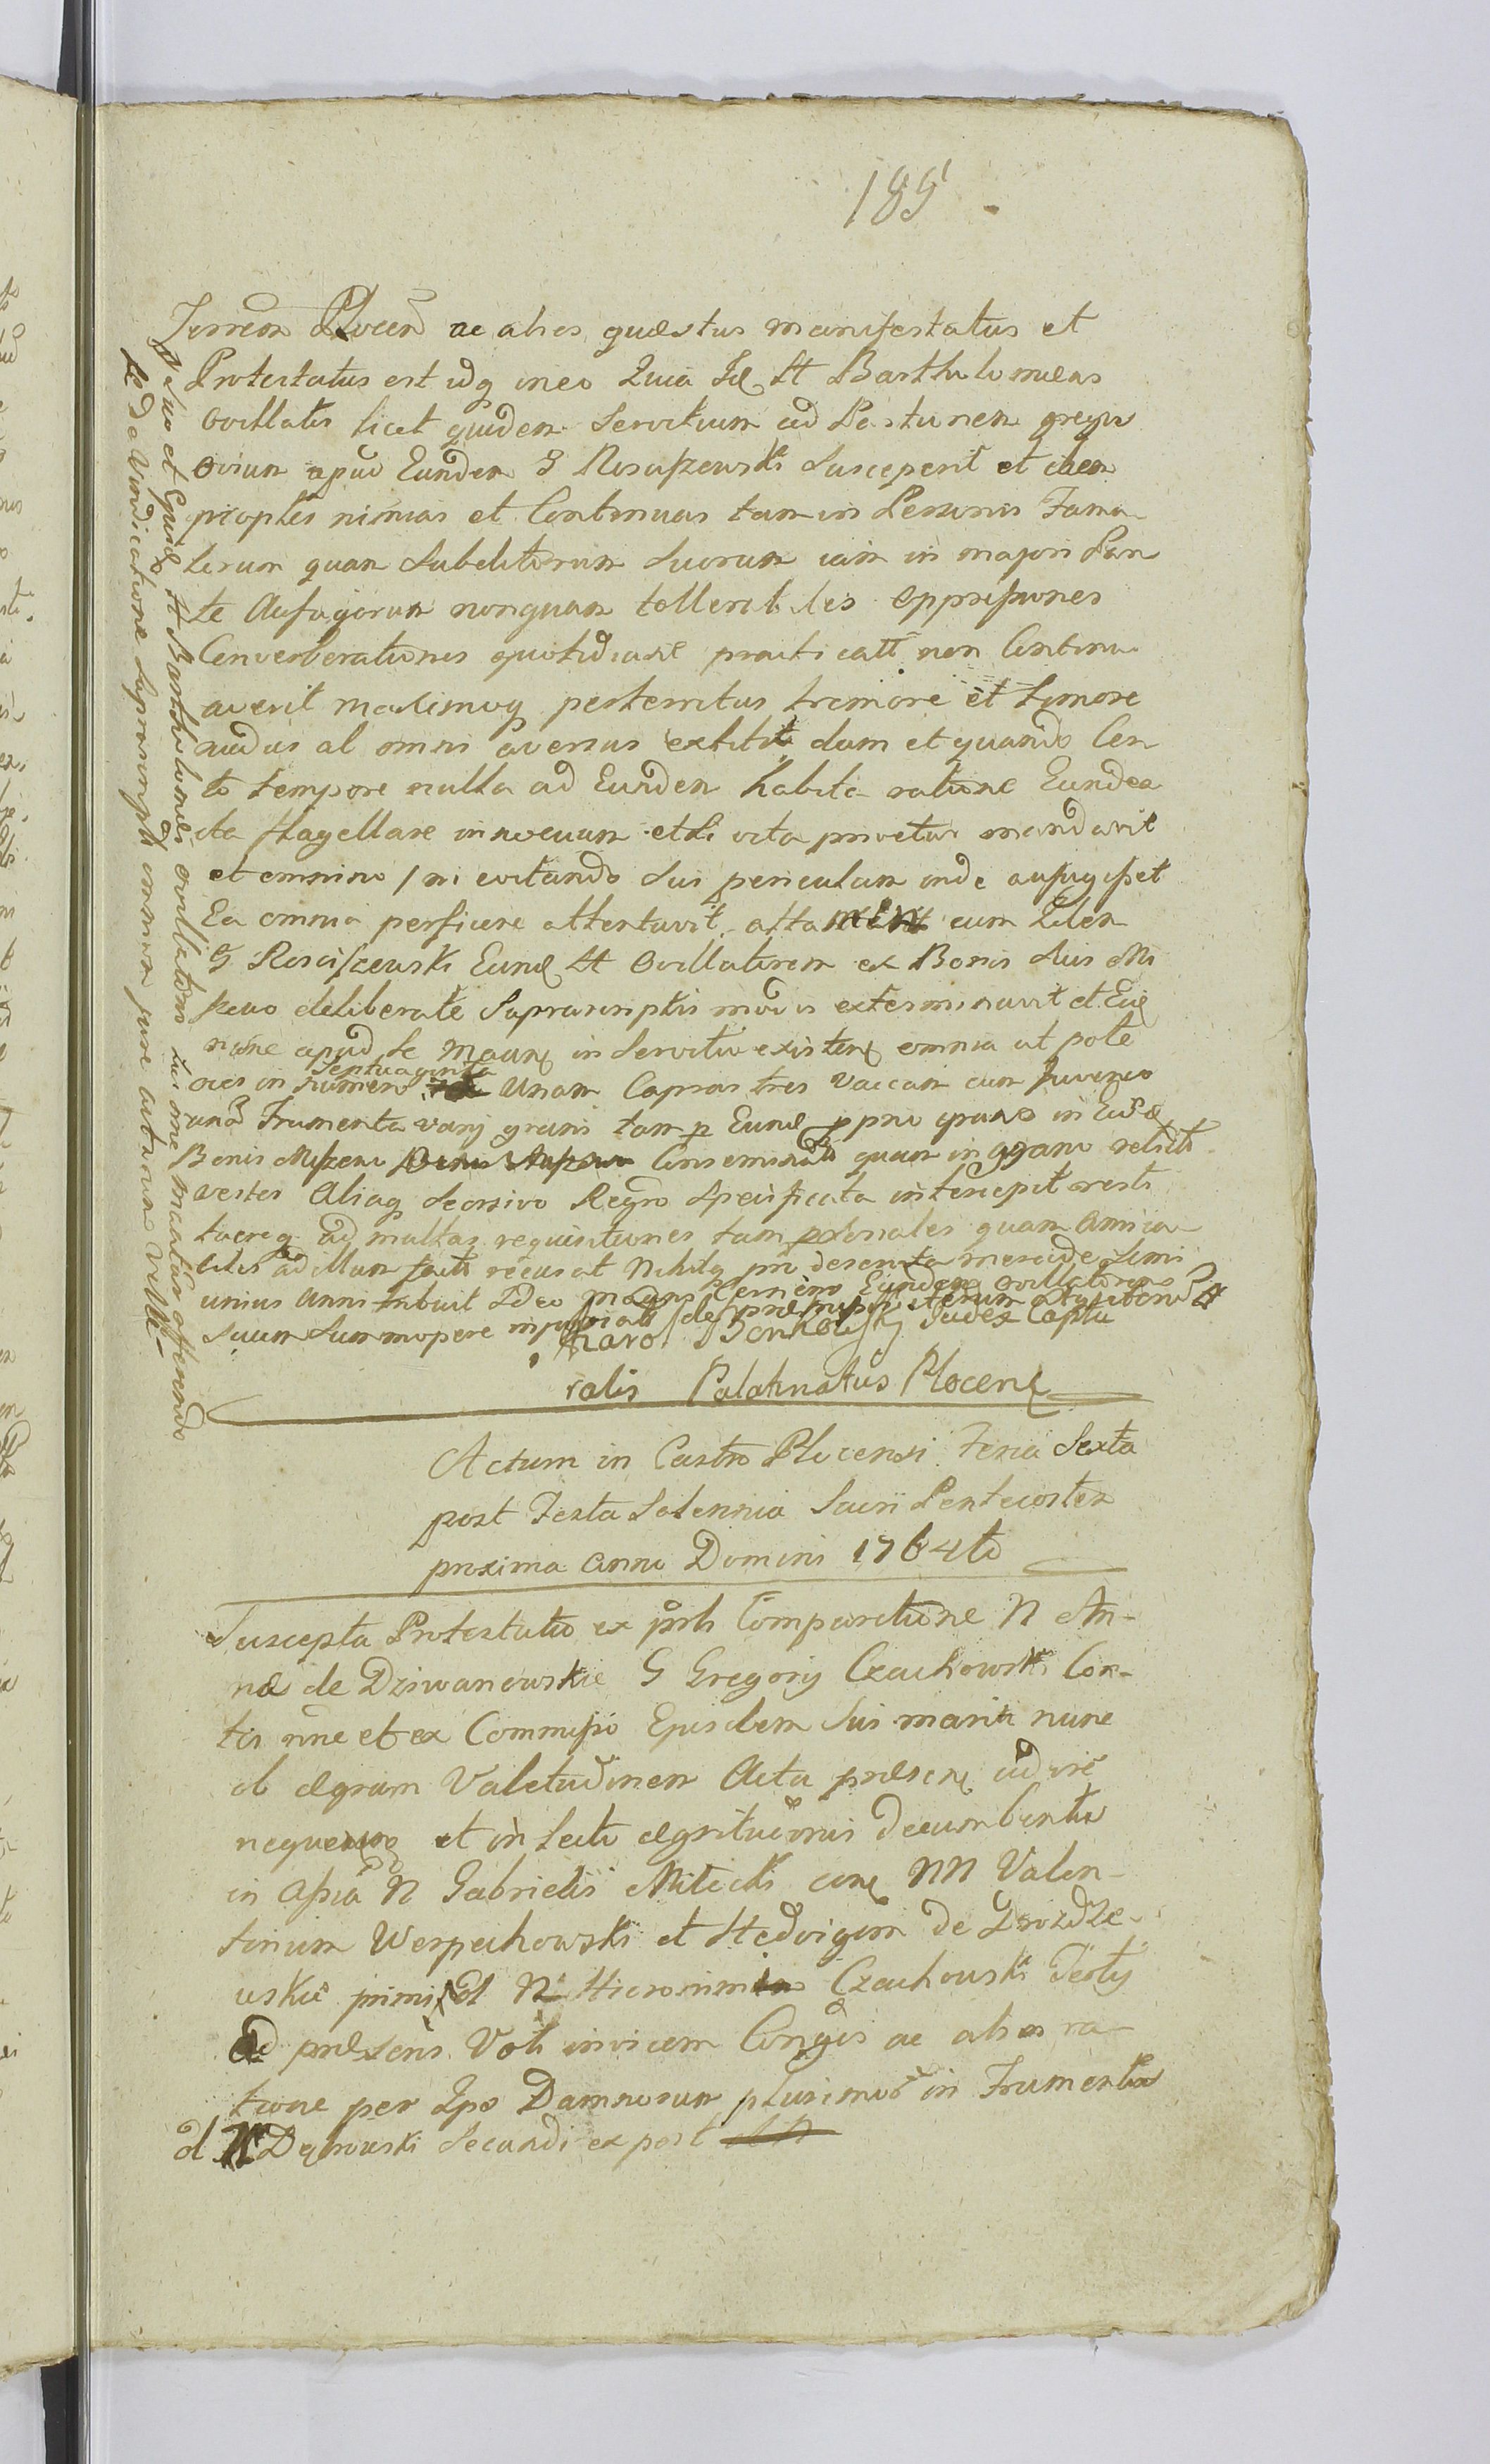 185
Terren Plocen ac alias quæstus manifestatus et
Protestatus est idq in eo Quia Id H Bartholomæus
Ovillator licet quidem Servitium ad Pastionem gregis
Ovium apud Eundem G Rosciszewski susceperit et idem
propter nimias et Continuas tam in Personis Famu-
lorum quam Subditorum suorum iam in majori Par
te Aufugorum nonquam tollerabiles oppressiones
Converberationes quotidiane practicatt non Continu
averit maximoq perterritus tremore et timore
ab omni aversus extitit dum et quando Cer
to tempore nulla ad Eundem habita ratione Eundem
ita flagellare et si vita privetur mandavit
et omnino / ni evitando sui periculum inde aufugisset
Ea omnia perficere attentavit attamen cum Idem
G Rosciszewski Eund H Ovillatorem ex Bonis suis Mi
szewo deliberate Suprascriptis modis exterminavit et Eiq
apud se in Servitio existen omnia ut pote
oves in numero Septuaginta Unam Capras tres Vaccam cum Juvenco
unam Frumenta varij grani tam p Eund in Eisd
Bonis Miszewo Conseminata quam in grano relicta
vestes Aliaq Seorsivo Regro Specificata intercepit resti
tuereq ad multas requisitiones tam personales quam amica-
biles ad illum factas recusat Nihilq pro deservita mercede Semi
unius Anni tribuit Ideo Eundem ovillatorem
Suum Summopere de præmissis iterum
Karol Bonkowsky Judex Captu
ralis Palatinatus Plocen
suo et Gnd H Bartholomæi ovillatoris sui offerendo
se de Vindicatione Suprascript omnium jure acturum Velle
Actum in Castro Plocensi Feria Sexta
post Festa Solennia Sacri Pentecostes
proxima Anno Domini 1764to
Suscepta Protestatio ex psli Comparitione N An-
næ de Dziwanowskie G Gregorij Czachowski Con-
tis nne et ex Commisso Ejusdem sui mariti nunc
ob ægram Valetudinem Acta præsen adire
nequeun et in Lecto ægritudinis decumbentis
in Assia N Gabrielis Miłocki con NN Valen-
tinum Werpechowski et Hedvigem de Drozdze-
wskie primi et N Hieronimi Czachowski Testij
ad præsens Voti invicem Conjges ac alias ra
tione per Ips Damnorum plurimor in Frumentis
ol N Dębrowski Secundi ex post